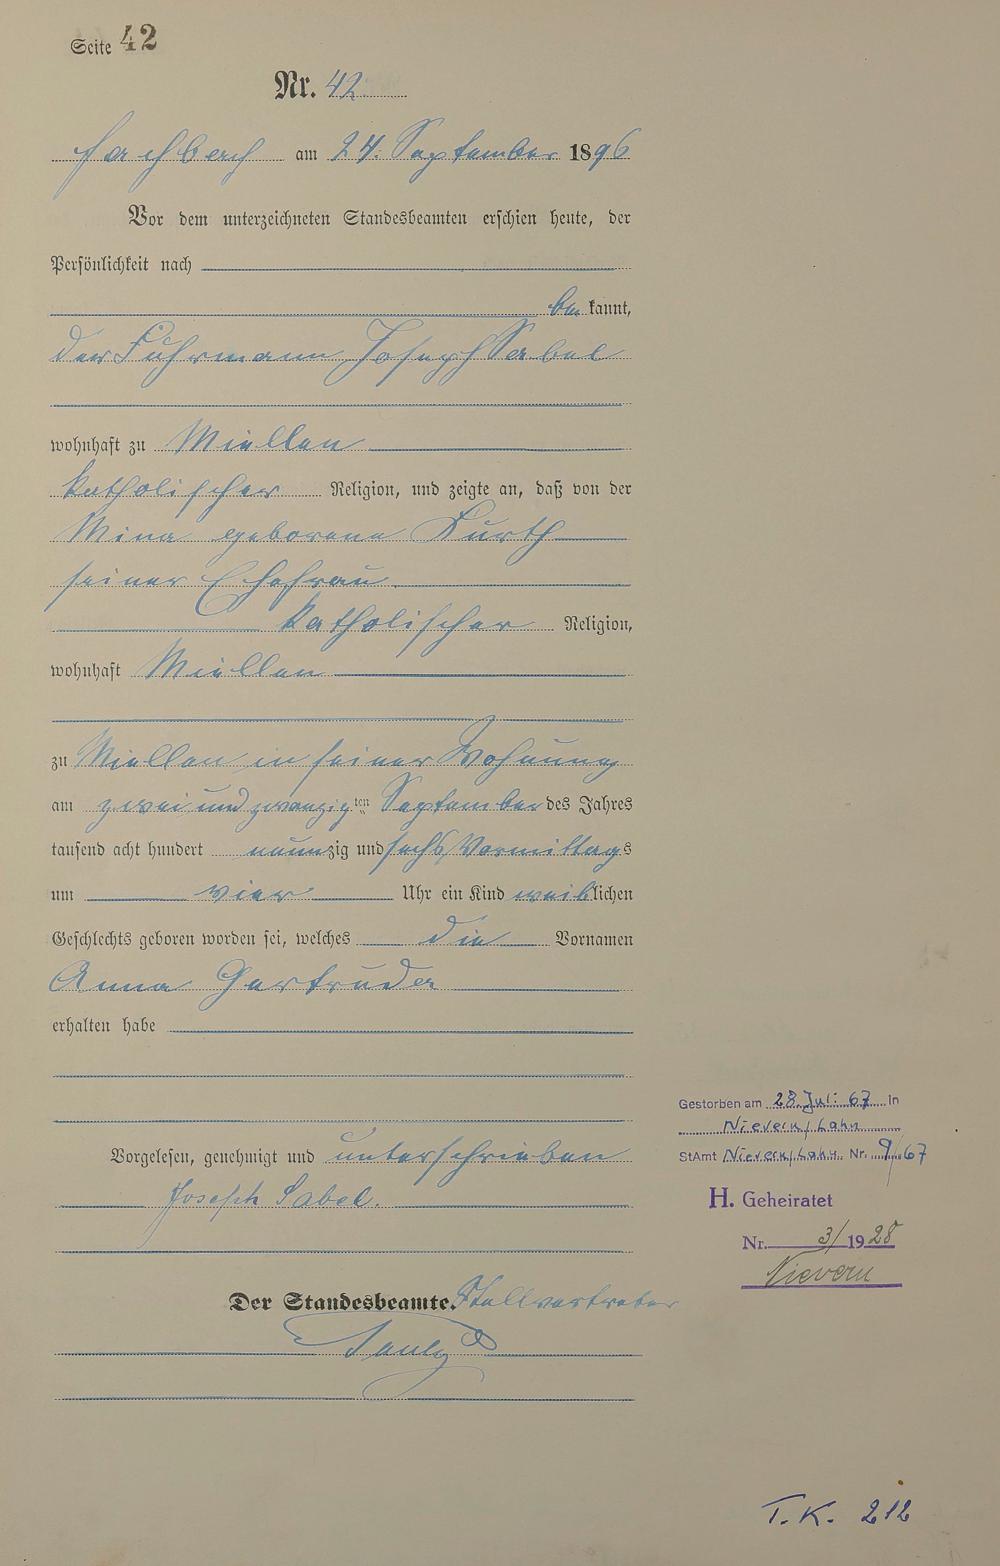 Seite 42
Nr. 42.
Fachbach am 24. September 1896
Vor dem unterzeichneten Standesbeamten erschien heute, der
Persönlichkeit nach
bekannt,
der Fuhrmann Joseph Sabel
wohnhaft zu Miellen
katholischer Religion, und zeigte an, daß von der
Mina geborene Kurth
seiner Ehefrau
katholischer Religion,
wohnhaft Miellen
zu Miellen in seiner Wohnung
am zwei und zwanzigten September des Jahres
tausend acht hundert neunzig und sechs Vormittags
um vier Uhr ein Kind weiblichen
Geschlechts geboren worden sei, welches die Vornamen
Anna Gertruda
erhalten habe
Vorgelesen, genehmigt und unterschrieben
Joseph Sabel.
Der Standesbeamte. Stellvertreter
Pauly
Gestorben am 28. Juli 67 in
Nievern/Lahn
StAmt Nievern/Lahn. Nr. 9/67
H. Geheiratet
Nr. 3/1928
Nievern
T. K. 212